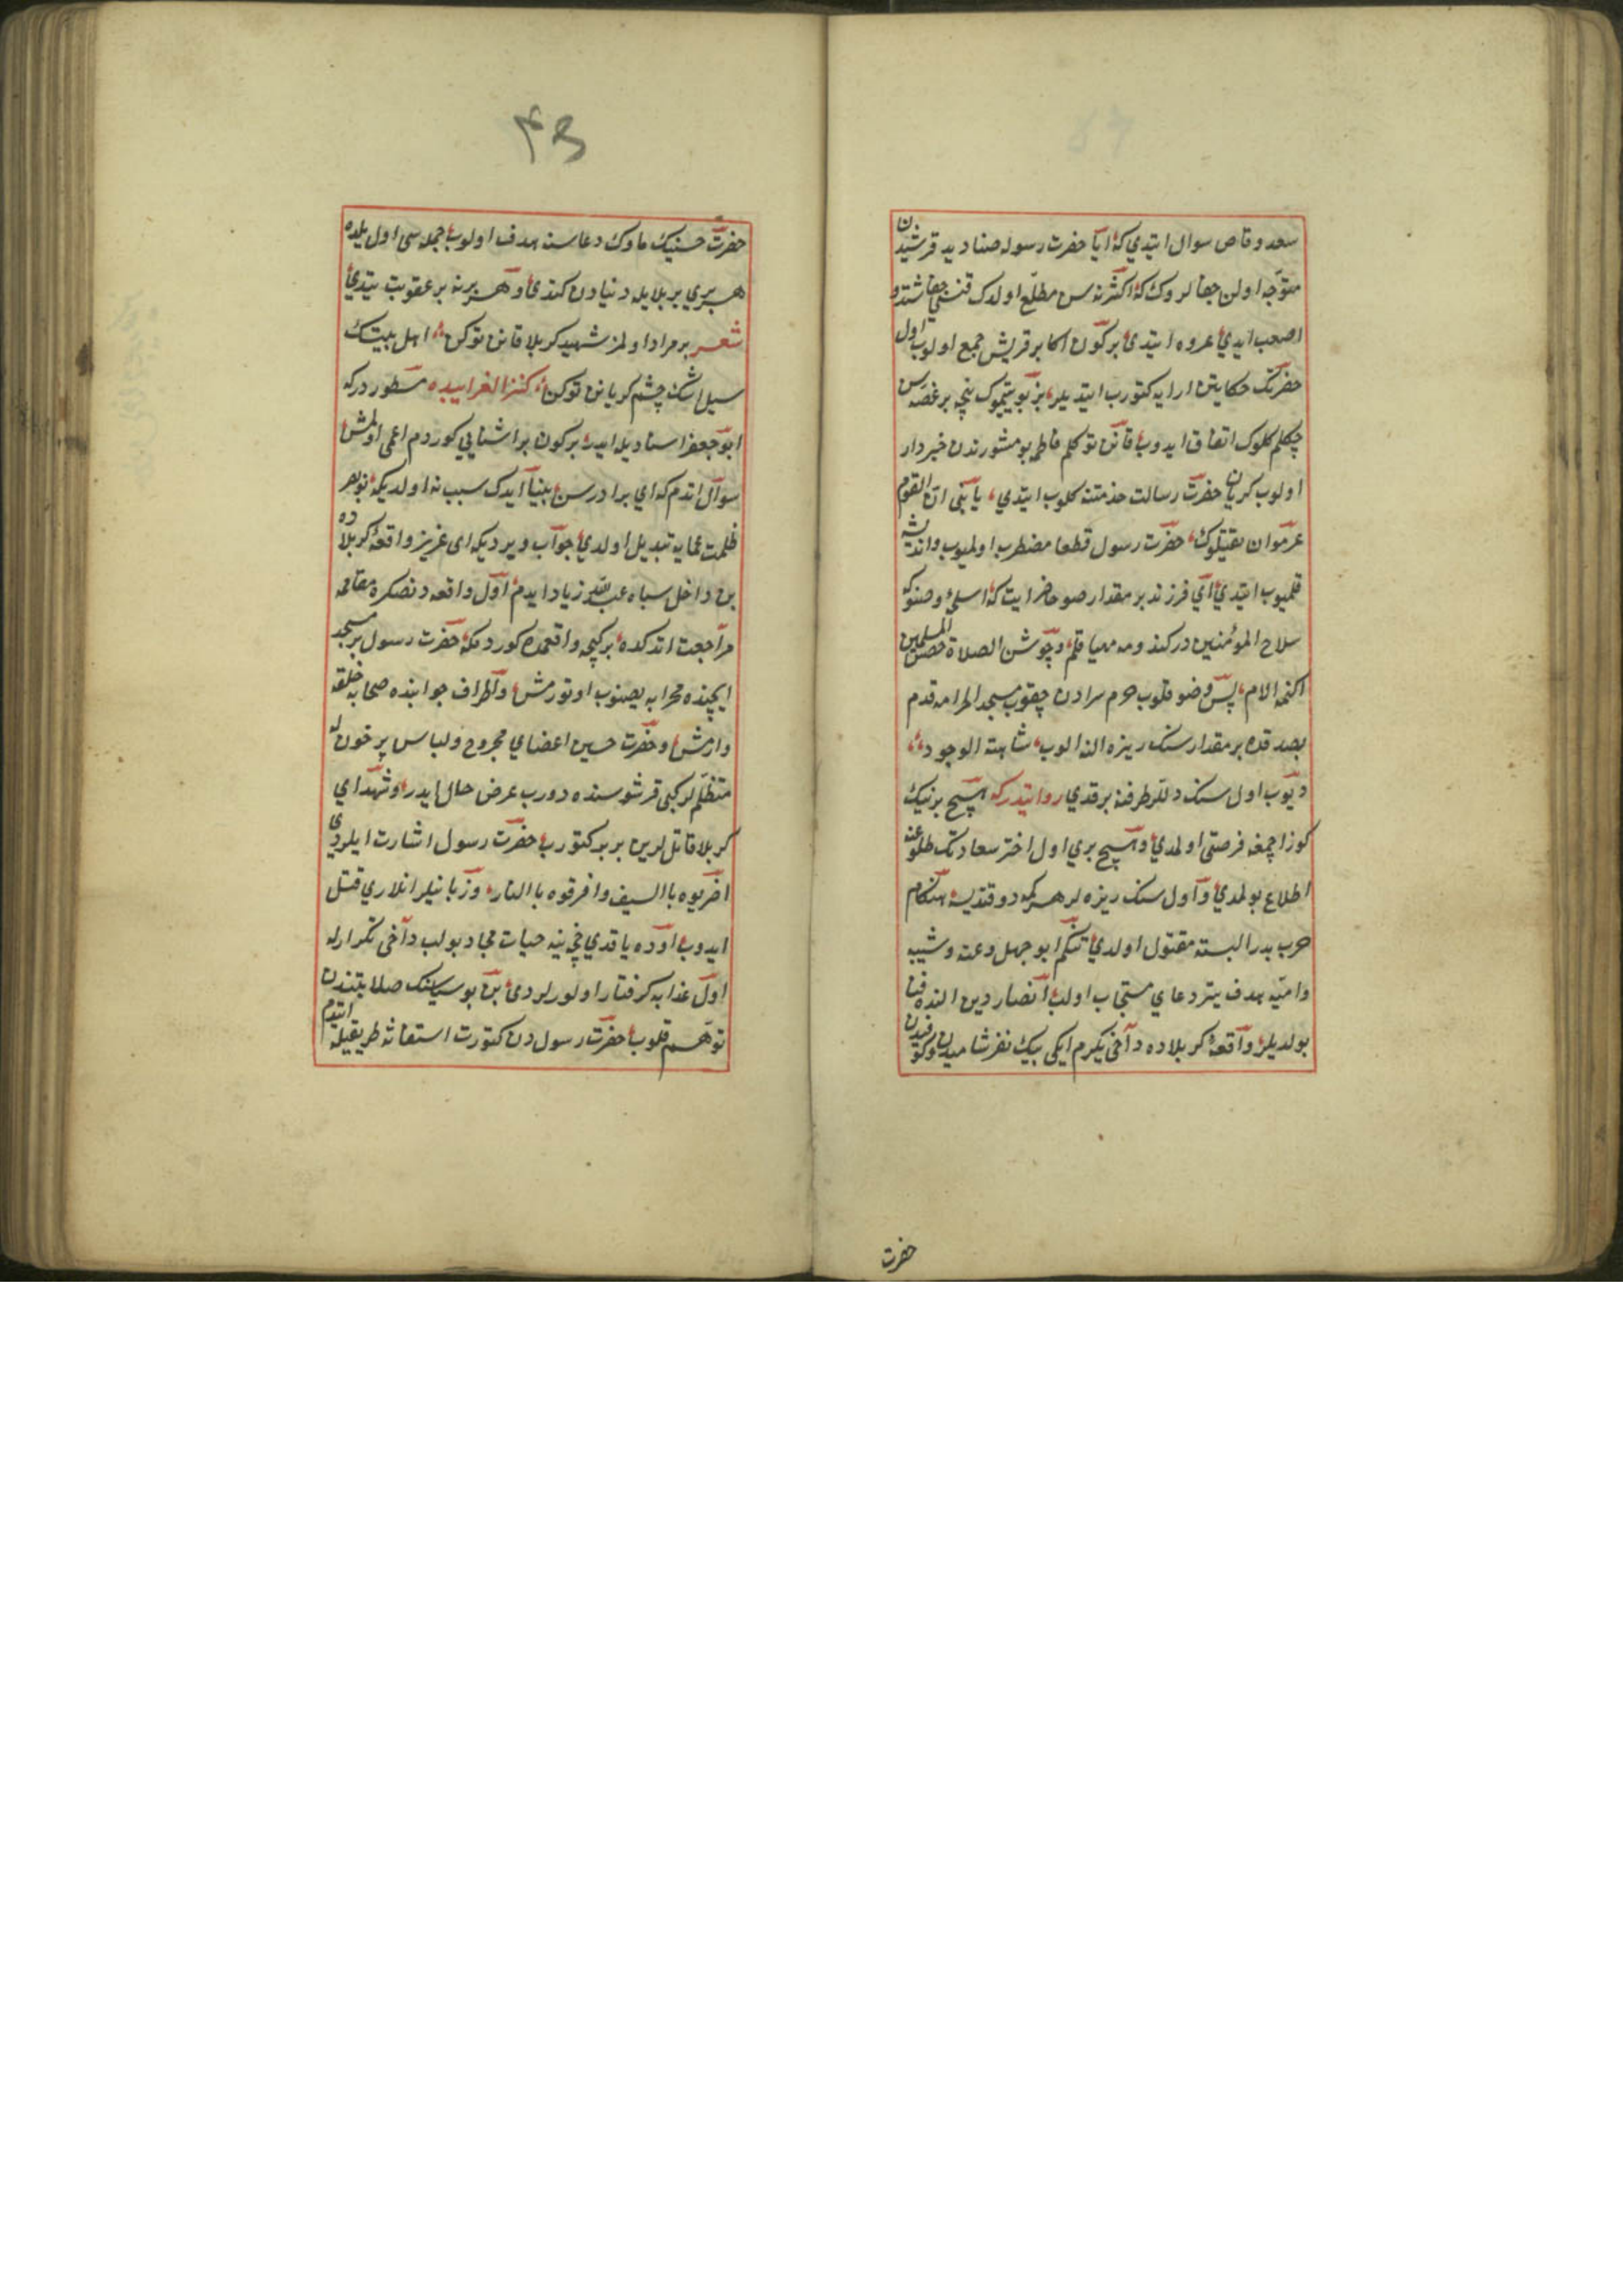 سعد وقاص سوال ايتدي كه ايا حضرت رسوله صناديد قريشدن
متوجه اولن جفالروك كه اكثرنه سن مطلع اولدك قنسي جفا اشد و
اصعب ايدي عروه ايتدي بر كون اكابر قريش جمع اولوب اول
حضرتك حكايتن ارايه كتورب ايتديلر بز بو يتيموك نيچه بر غصه سن
چكلم كلوك اتفاق ايدوب قانن توكلم فاطمه بو مشورتدن خبردار
اولوب كريان حضرت رسالت خدمتنه كلوب ايتدي يا نبي ان القوم
عزموان يقتلوك حضرت رسول قطعا مضطرب اولميوب وانديشه
قلميوب ايتدي اي فرزند بر مقدار صو حاضر ايت كه اسلحه وضوكه
سلاح المؤمنين دركندومه مهيا قلم وجوشن الصلاة حصن المسلمين
اكنمه الام پس وضو قلوب حرم سرادن چقوب مسجد الحرامه قدم
بصدقده بر مقدار سنك ريزه النه الوب شاهت الوجوه
ديوب اول سنك دللر طرفنه برقدي روايتدركه هيچ برنيك
كوز اچمغه فرصتي اولمدي وهيچ بري اول اختر سعادتك طلوعنه
اطلاع بولمدي واول سنك ريزه لر هر كمه دوقنديسه هنكام
حرب بدر البسته مقتول اولدي تتكم ابو جهل وعتبه وشيبه
واميه هدف تير دعاي مستجاب اولب انصار دين النده فنا
بولديلر واقعه كربلاده داخي يكرم ايكي بيك نفر شاميدن وكوفيدن
حضرت
۴۵
حضرت حسينيك ناوك دعاسنه هدف اولوب جمله سي اول يلده
هر بري بر بلايله دنيادن كتدي وهر برنه بر عقوبت يتدي
شعر بر مراد اولمز شهيد كربلا قانن توكن اهل بيتك
سيل اشك چشم كريانن توكن كنز الغرايبده مسطور دركه
ابو جعفر اسناديله ايدر بر كون بر اشنايي كوردم اعمي اولمش
سوال اتدم كه اي برادر سن بينا ايدك سبب نه اولديكه نور بصر
ظلمت عمايه تبديل اولدي جواب ويرديكه اي عزيز واقعه كربلاده
بن داخل سپاه عبيدالله زياد ايدم اول واقعه دنصكره مقامه
مراجعت اتدكده بر كيجه واقعمده كوردمكه حضرت رسول بر مسجد
ايچنده محرابه يصنوب اوتورمش واطراف جوانبده صحابه خلقه
وارمش وحضرت حسين اعضاي مجروح ولباس پر خون له
متظلم لر كبي قرشوسنده دورب عرض حال ايدر وشهداي
كربلا قاتل لرين بر بر كتورب حضرت رسول اشارت ايلردي
اضربوه با السيف وافرقوه با النار وزبانيلر انلاري قتل
ايدوب اوده ياقدي غيرينه حيات مجاد بولب داخي تكرارله
اول عذابه كرفتار اولورلردي بن بو سياستك صلابتندن
توهم قلوب حضرت رسول دن كتورت استغاثه طريقيله ايتدم